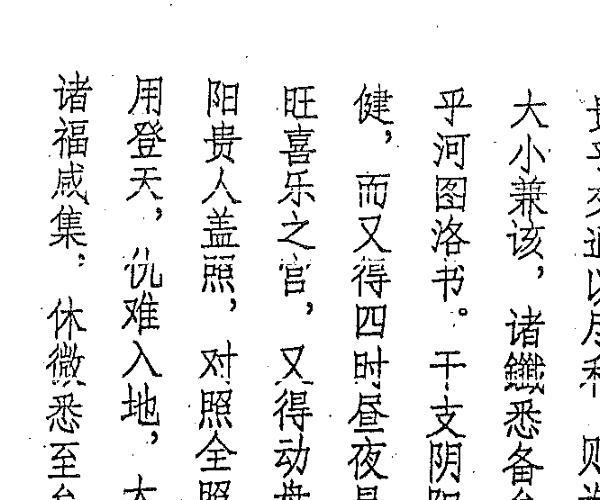 大小兼该，诸鑯悉备
乎河图洛书。干支阴
健，而又得四时昼夜
旺喜乐之官，又得动
阳贵人盖照，对照全
用登天，仇难入地，
诸福咸集：休微悉至